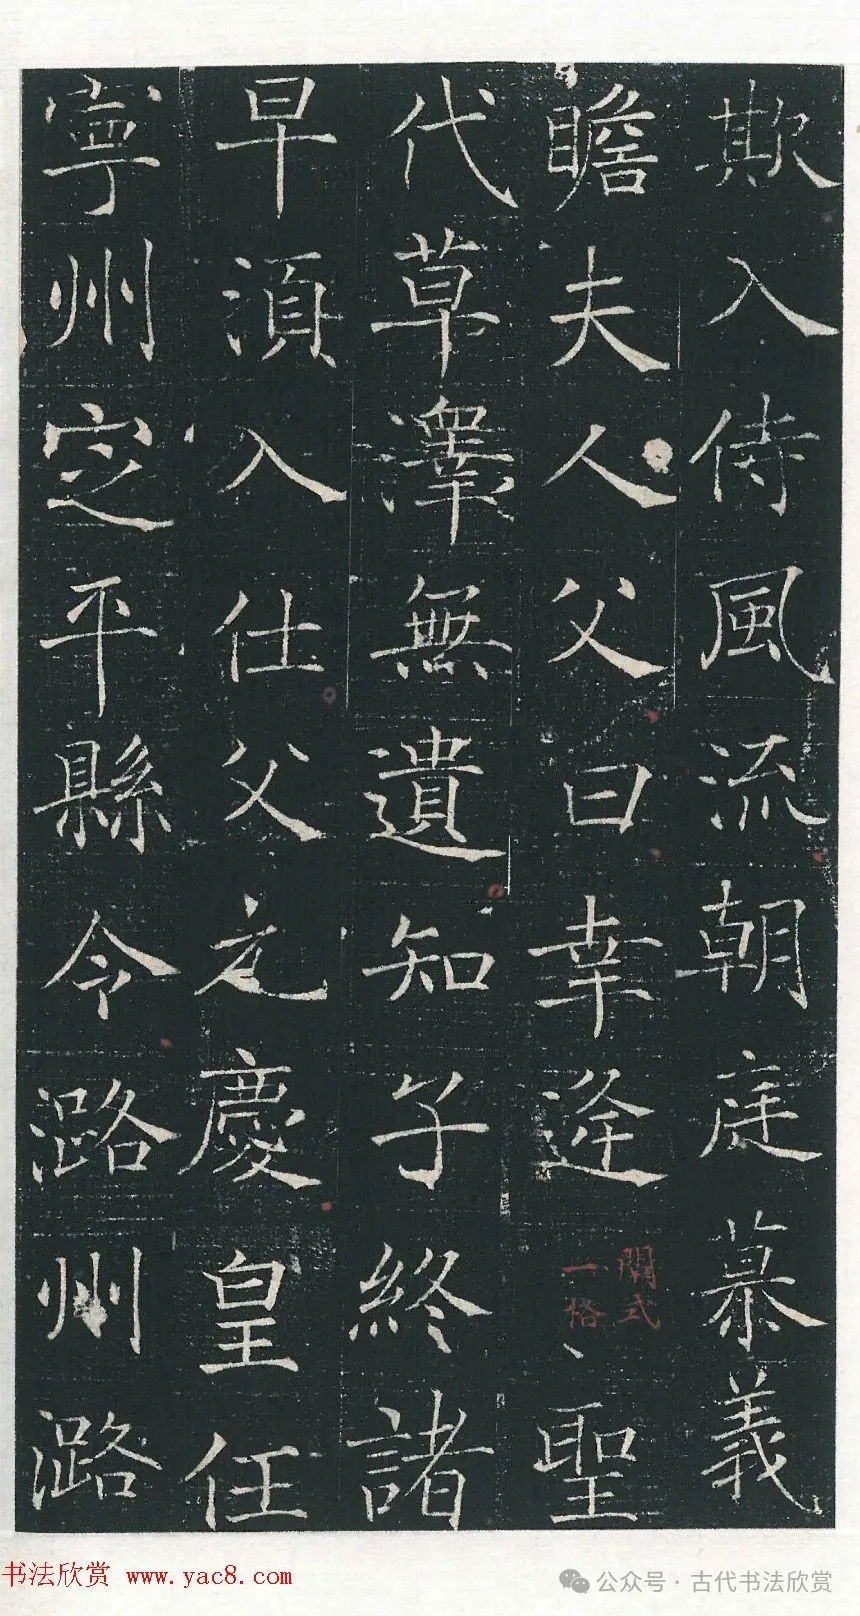 欺入侍風流朝庭慕義
瞻夫人父曰幸逢聖
代草澤無遺知子終諸
早須入仕父之慶皇任
寧州定平縣令潞州潞
闕式
一格
书法欣赏 www.yac8.com
公众号·古代书法欣赏